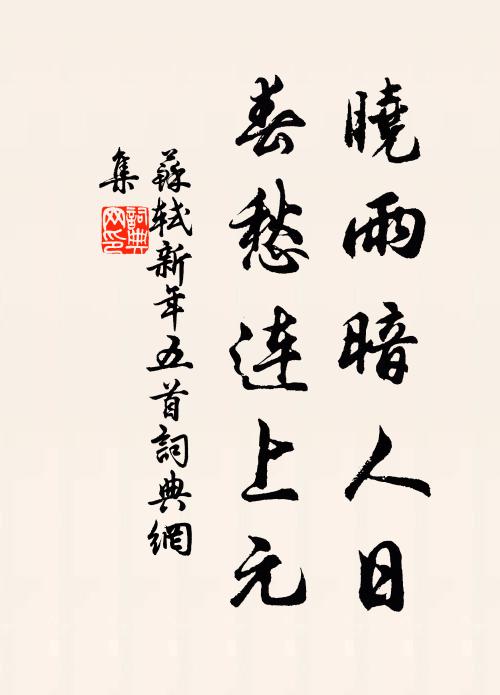 曉雨暗人日
春愁连上元
蘇軾新年五首詞典網
集
詞典
网印